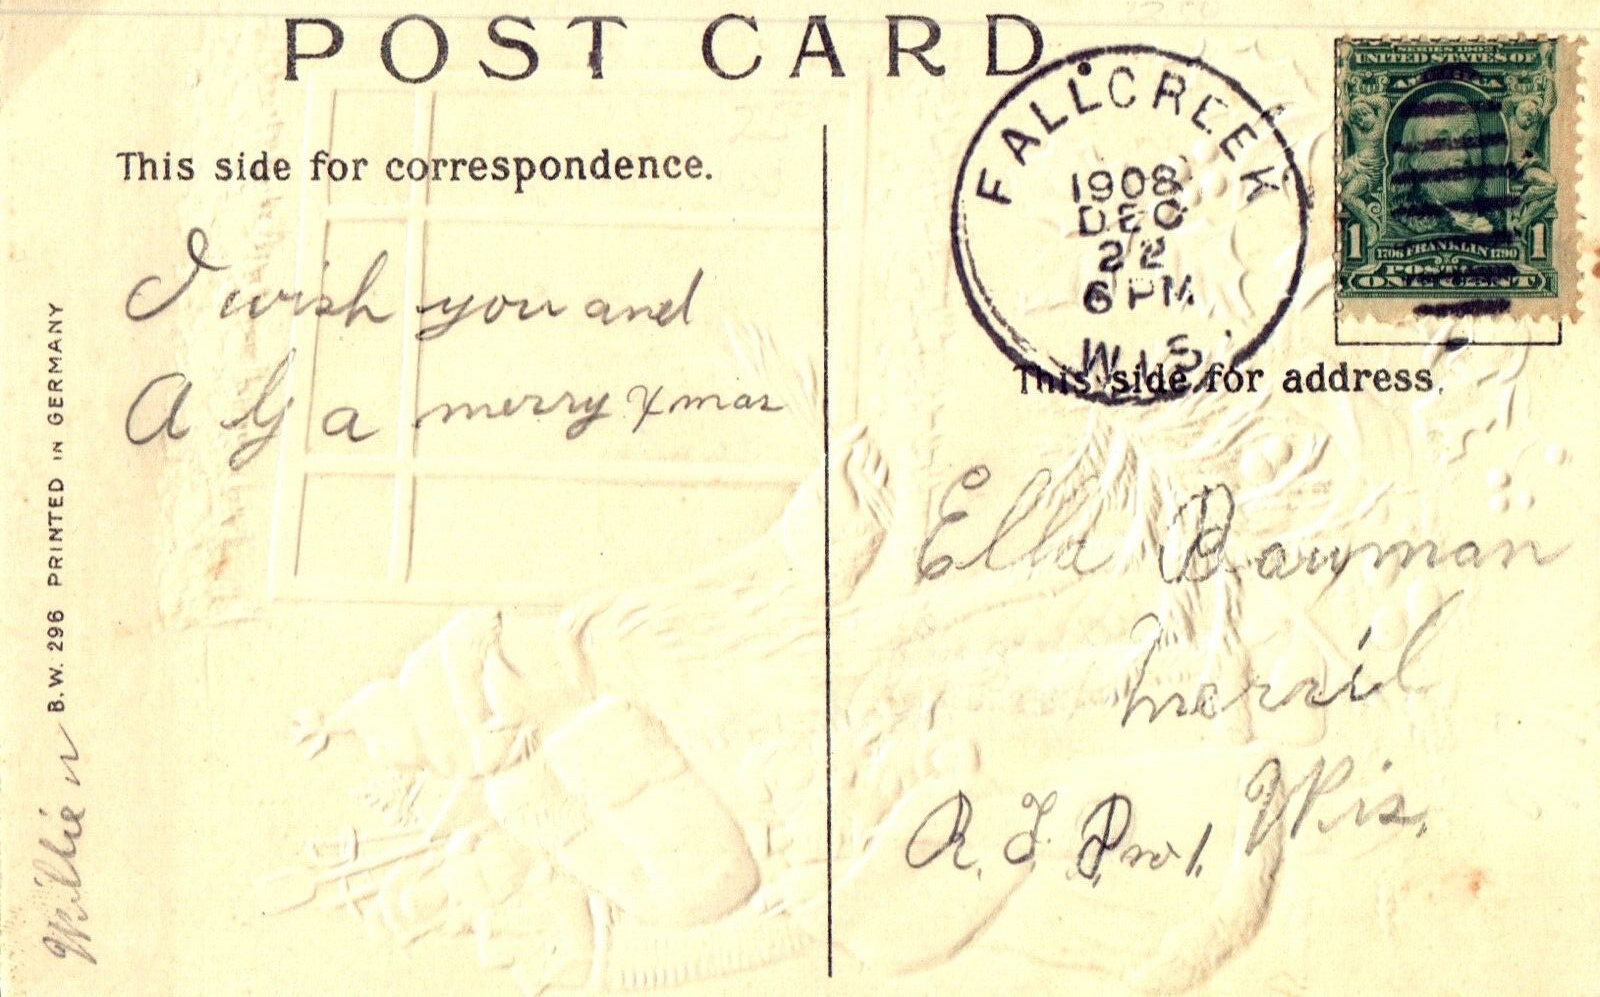 POST CARD
This side for correspondence.
I wish you and
A G a merry Xmas
Willie n
B.W. 296 PRINTED IN GERMANY
FALL CREEK
1908
DEC
22
6 PM
WIS.
SERIES 1902
UNITED STATES OF
AMERICA
1 1706 FRANKLIN 1790 1
ONE CENT
This side for address.
Ella Bauman
Merril
Wis.
R. F. D. no 1.